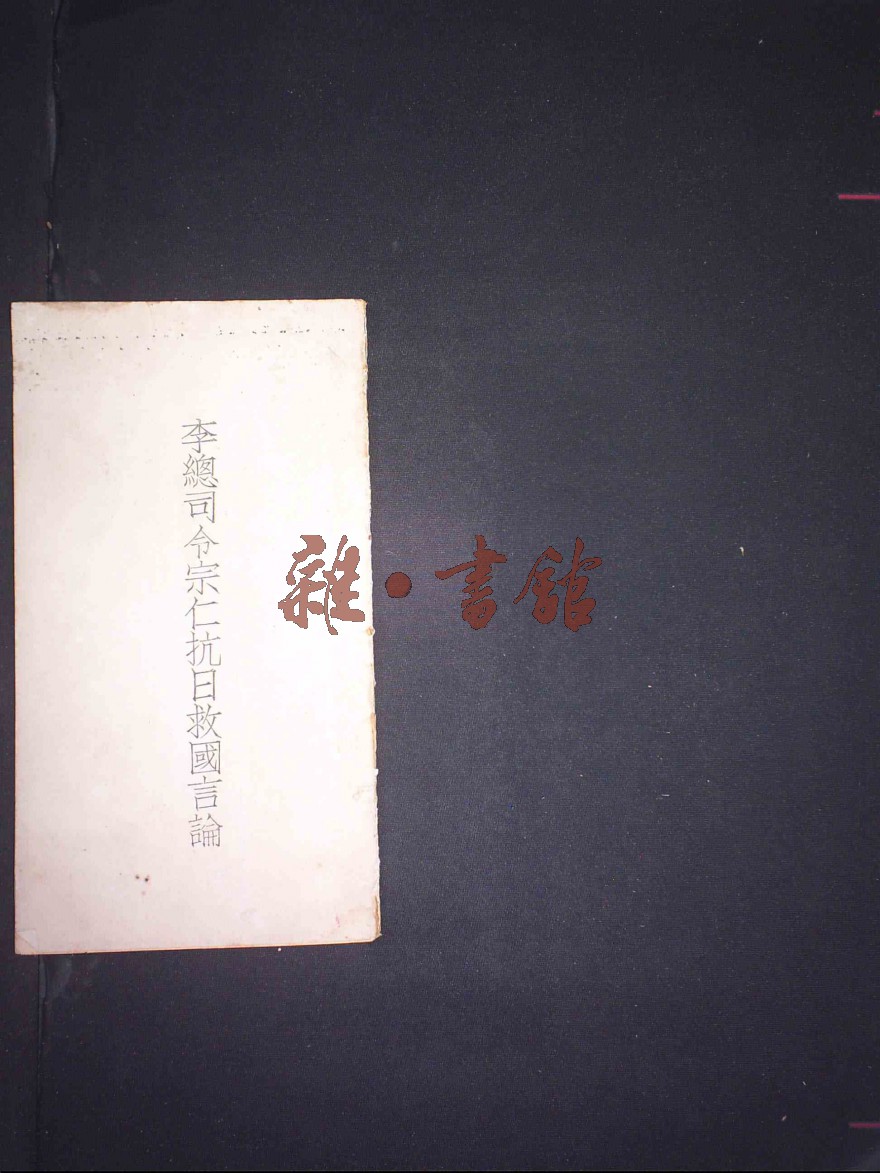 李總司令宗仁抗日救國言論
雜·書館